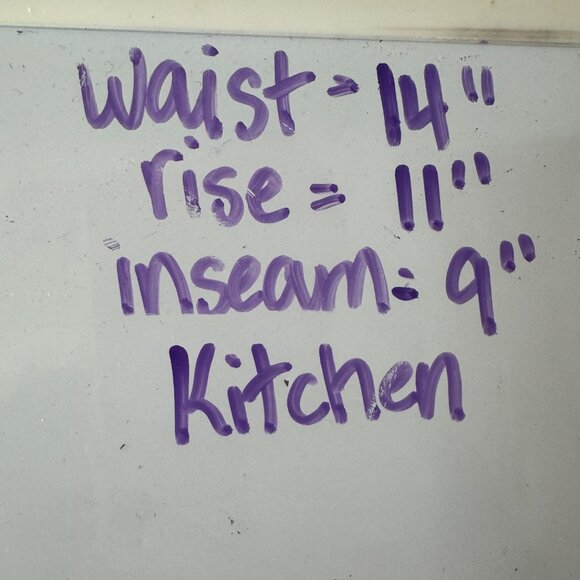 waist = 14"
rise = 11"
inseam = 9"
Kitchen